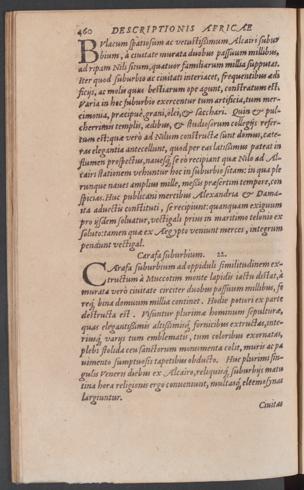 460 DESCRIPTIONIS AFRICAE
BVlacum spatiosum ac vetustissimum Alcairi subur
bium, à ciuitate murata duobus passuum millibus,
ad ripam Nili situm, quatuor familiarum millia supputat.
Iter quod suburbio ac ciuitati interiacet, frequentibus ædi
ficijs, ac molis quas bestiarum ope agunt, constratum est.
Varia in hoc suburbio exercentur tum artificia, tum mer-
cimonia, præcipuè grani, olei, & sacchari. Quin & pul-
cherrimis templis, ædibus, & studiosorum collegijs refer-
tum est: quæ verò ad Nilum constructæ sunt domus, cæte-
ras elegantia antecellunt, quod per eas latissimus pateat in
flumen prospectus, nauesq́; se eò recipiant quæ Nilo ad Al-
cairi stationem vehuntur hoc in suburbio sitam: in qua ple
runque naues amplius mille, messis præsertim tempore, con
spicias. Huc publicani mercibus Alexandria & Dama-
ita aductis constituti, se recipiunt: quanquam exiguum
pro ijsdem soluatur, vectigali prius in maritimo telonio ex
soluto: tamen quæ ex Aegypto veniunt merces, integrum
pendunt vectigal.
Carafa suburbium. 22.
CArafa suburbium ad oppiduli similitudinem ex-
tructum à Muccotim monte lapidis iactu distat, à
murata verò ciuitate circiter duobus passuum millibus, fo
req́; bina domuum millia continet. Hodie potiori ex parte
destructa est. Visuntur plurimæ hominum sepulturæ,
quas elegantissimis altissimisq́; fornicibus extructas, inte-
riusq́; varijs tum emblematis, tum coloribus exornatas,
plebs stolida ceu sanctorum monumenta colit, muris ac pa
uimento sumptuosis tapetibus obducto. Huc plurimi sin-
gulis Veneris diebus ex Alcairo, reliquisq́; suburbijs matu
tina hora religionis ergo conueniunt, multasq́; eleemosynas
largiuntur.
Ciuitas